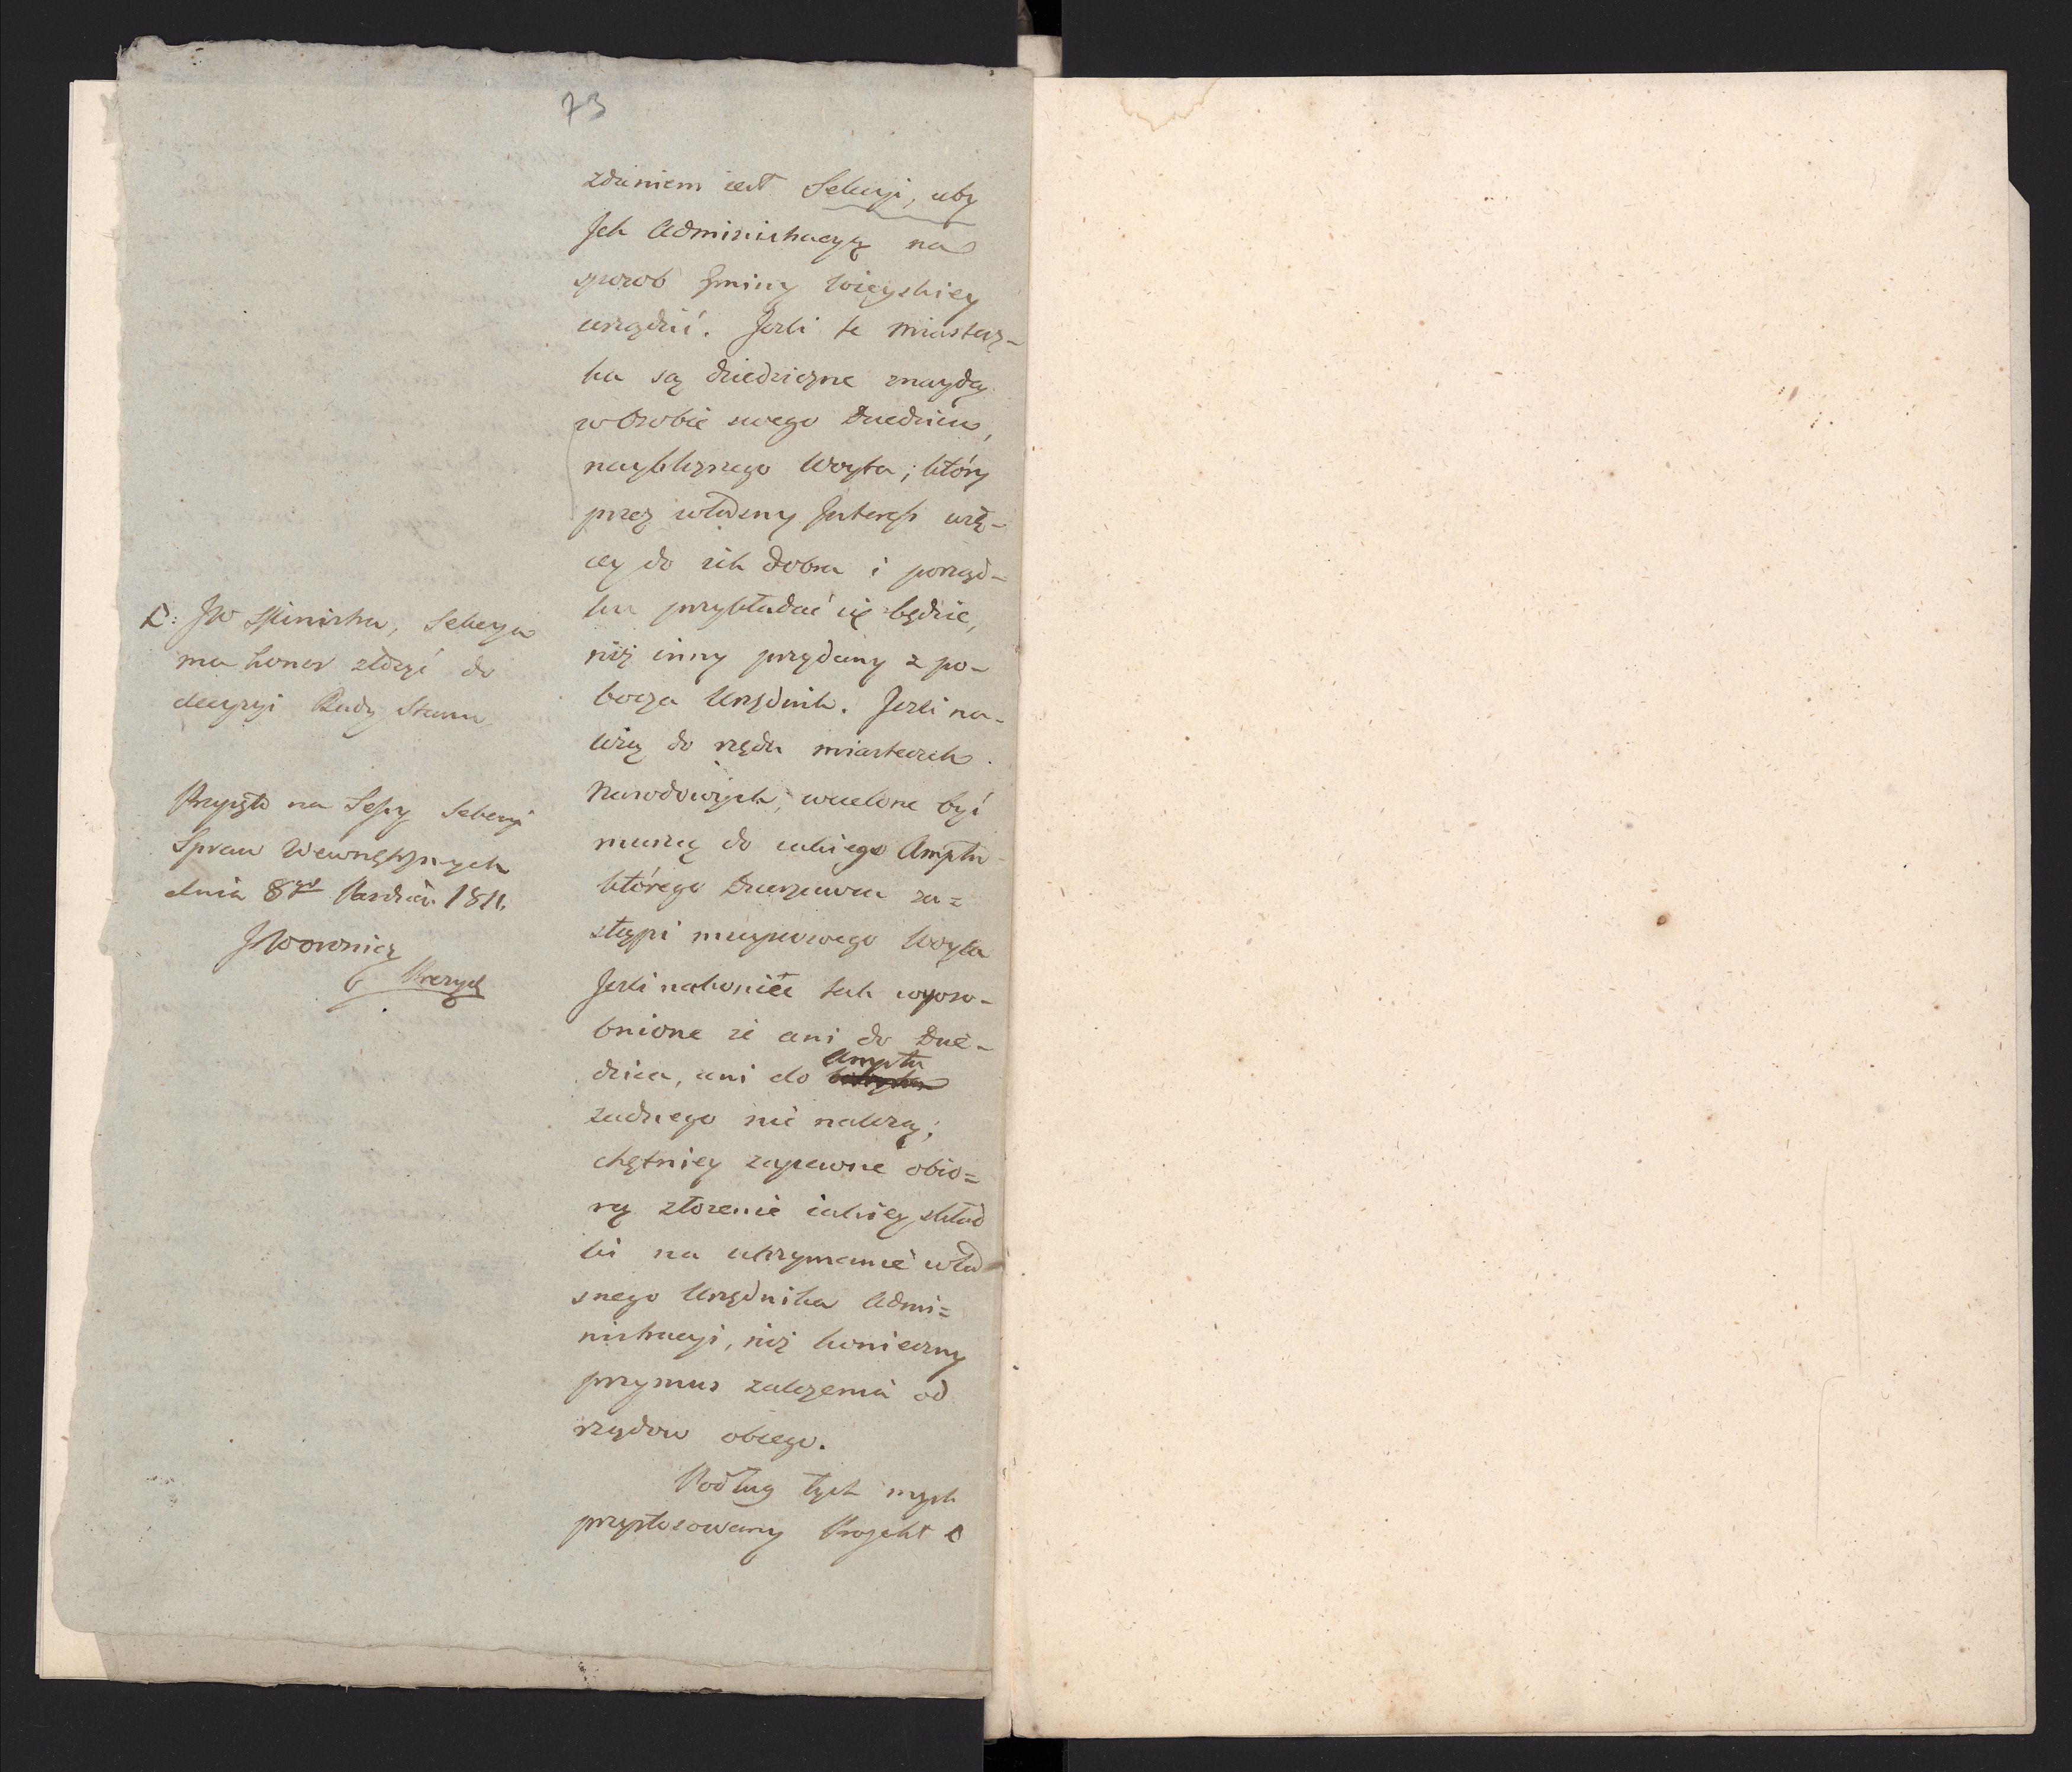 73
zdaniem iest Sekcyi, aby
Ich Administracyą na
sposob Gminy wieyskiey
urządzić. Jeżli te miastecz-
ka są dziedziczne znaydą
w Osobie swego Dziedzica,
nayblizszego Woyta; który
przez własny Interess wię-
cey do ich dobra i porząd-
ku przykładać się będzie,
niż inny przydany z po-
bocza Urzędnik. Jeżli na-
leżą do rzędu miasteczek
Narodowych, wcielone być
muszą do iakiego Amptu
którego Dzierzawca za=
stąpi mieyscowego Woyta
Jeżli nakoniec tak wyoso-
bnione że ani do Dzie-
dzica, ani do Amptu
żadnego nie należą;
chętniey zapewne obio=
rą złożenie iakiey skład
ki na utrzymanie wła
snego Urzędnika Admi=
nistracyi, niż konieczny
przymus zależenia od
rządow obcego.
Podług tych mysli
przystosowany Projekt
JW Ministra, Sekcya
ma honor złożyć do
decyzyi Rady Stanu
Przyięto na Sessy Sekcyi
Spraw Wewnętrznych
dnia 8go Paźdźier. 1811.
J Woronicz
Prezyd